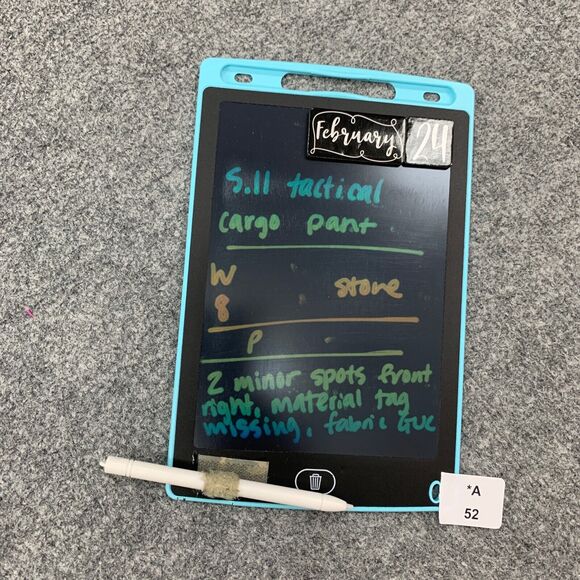 February 24
5.11 tactical
cargo pant
W
8 stone
P
2 minor spots front
right, material tag
missing, fabric GUC
*A
52